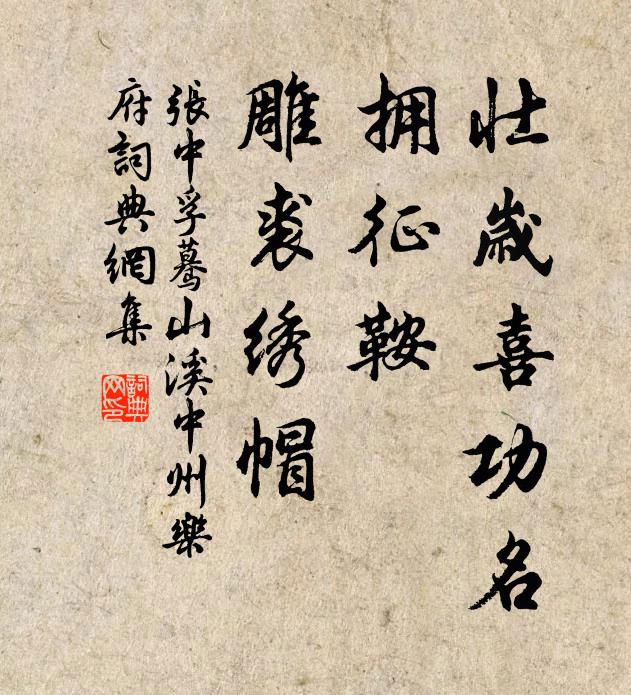 壮岁喜功名
拥征鞍
雕裘绣帽
張中孚驀山溪中州樂
府詞典網集
詞典网印